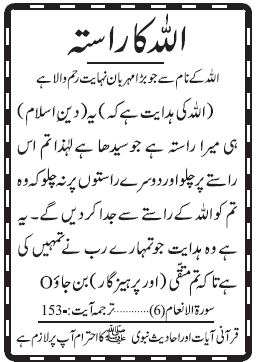 اللہ کا راستہ
اللہ کے نام سے جو بڑا مہربان نہایت رحم والا ہے
(اللہ کی ہدایت ہے کہ) یہ (دینِ اسلام)
ہی میرا راستہ ہے جو سیدھا ہے لہٰذا تم اس
راستے پر چلو اور دوسرے راستوں پر نہ چلو کہ وہ
تم کو اللہ کے راستے سے جدا کر دیں گے۔ یہ
ہے وہ ہدایت جو تمہارے رب نے تمہیں کی
ہے تاکہ تم متقی (اور پرہیز گار) بن جاؤO
سورۃ الانعام (6)............ترجمہ آیت:-153
قرآنی آیات اور احادیث نبوی ﷺ کا احترام آپ پر لازم ہے